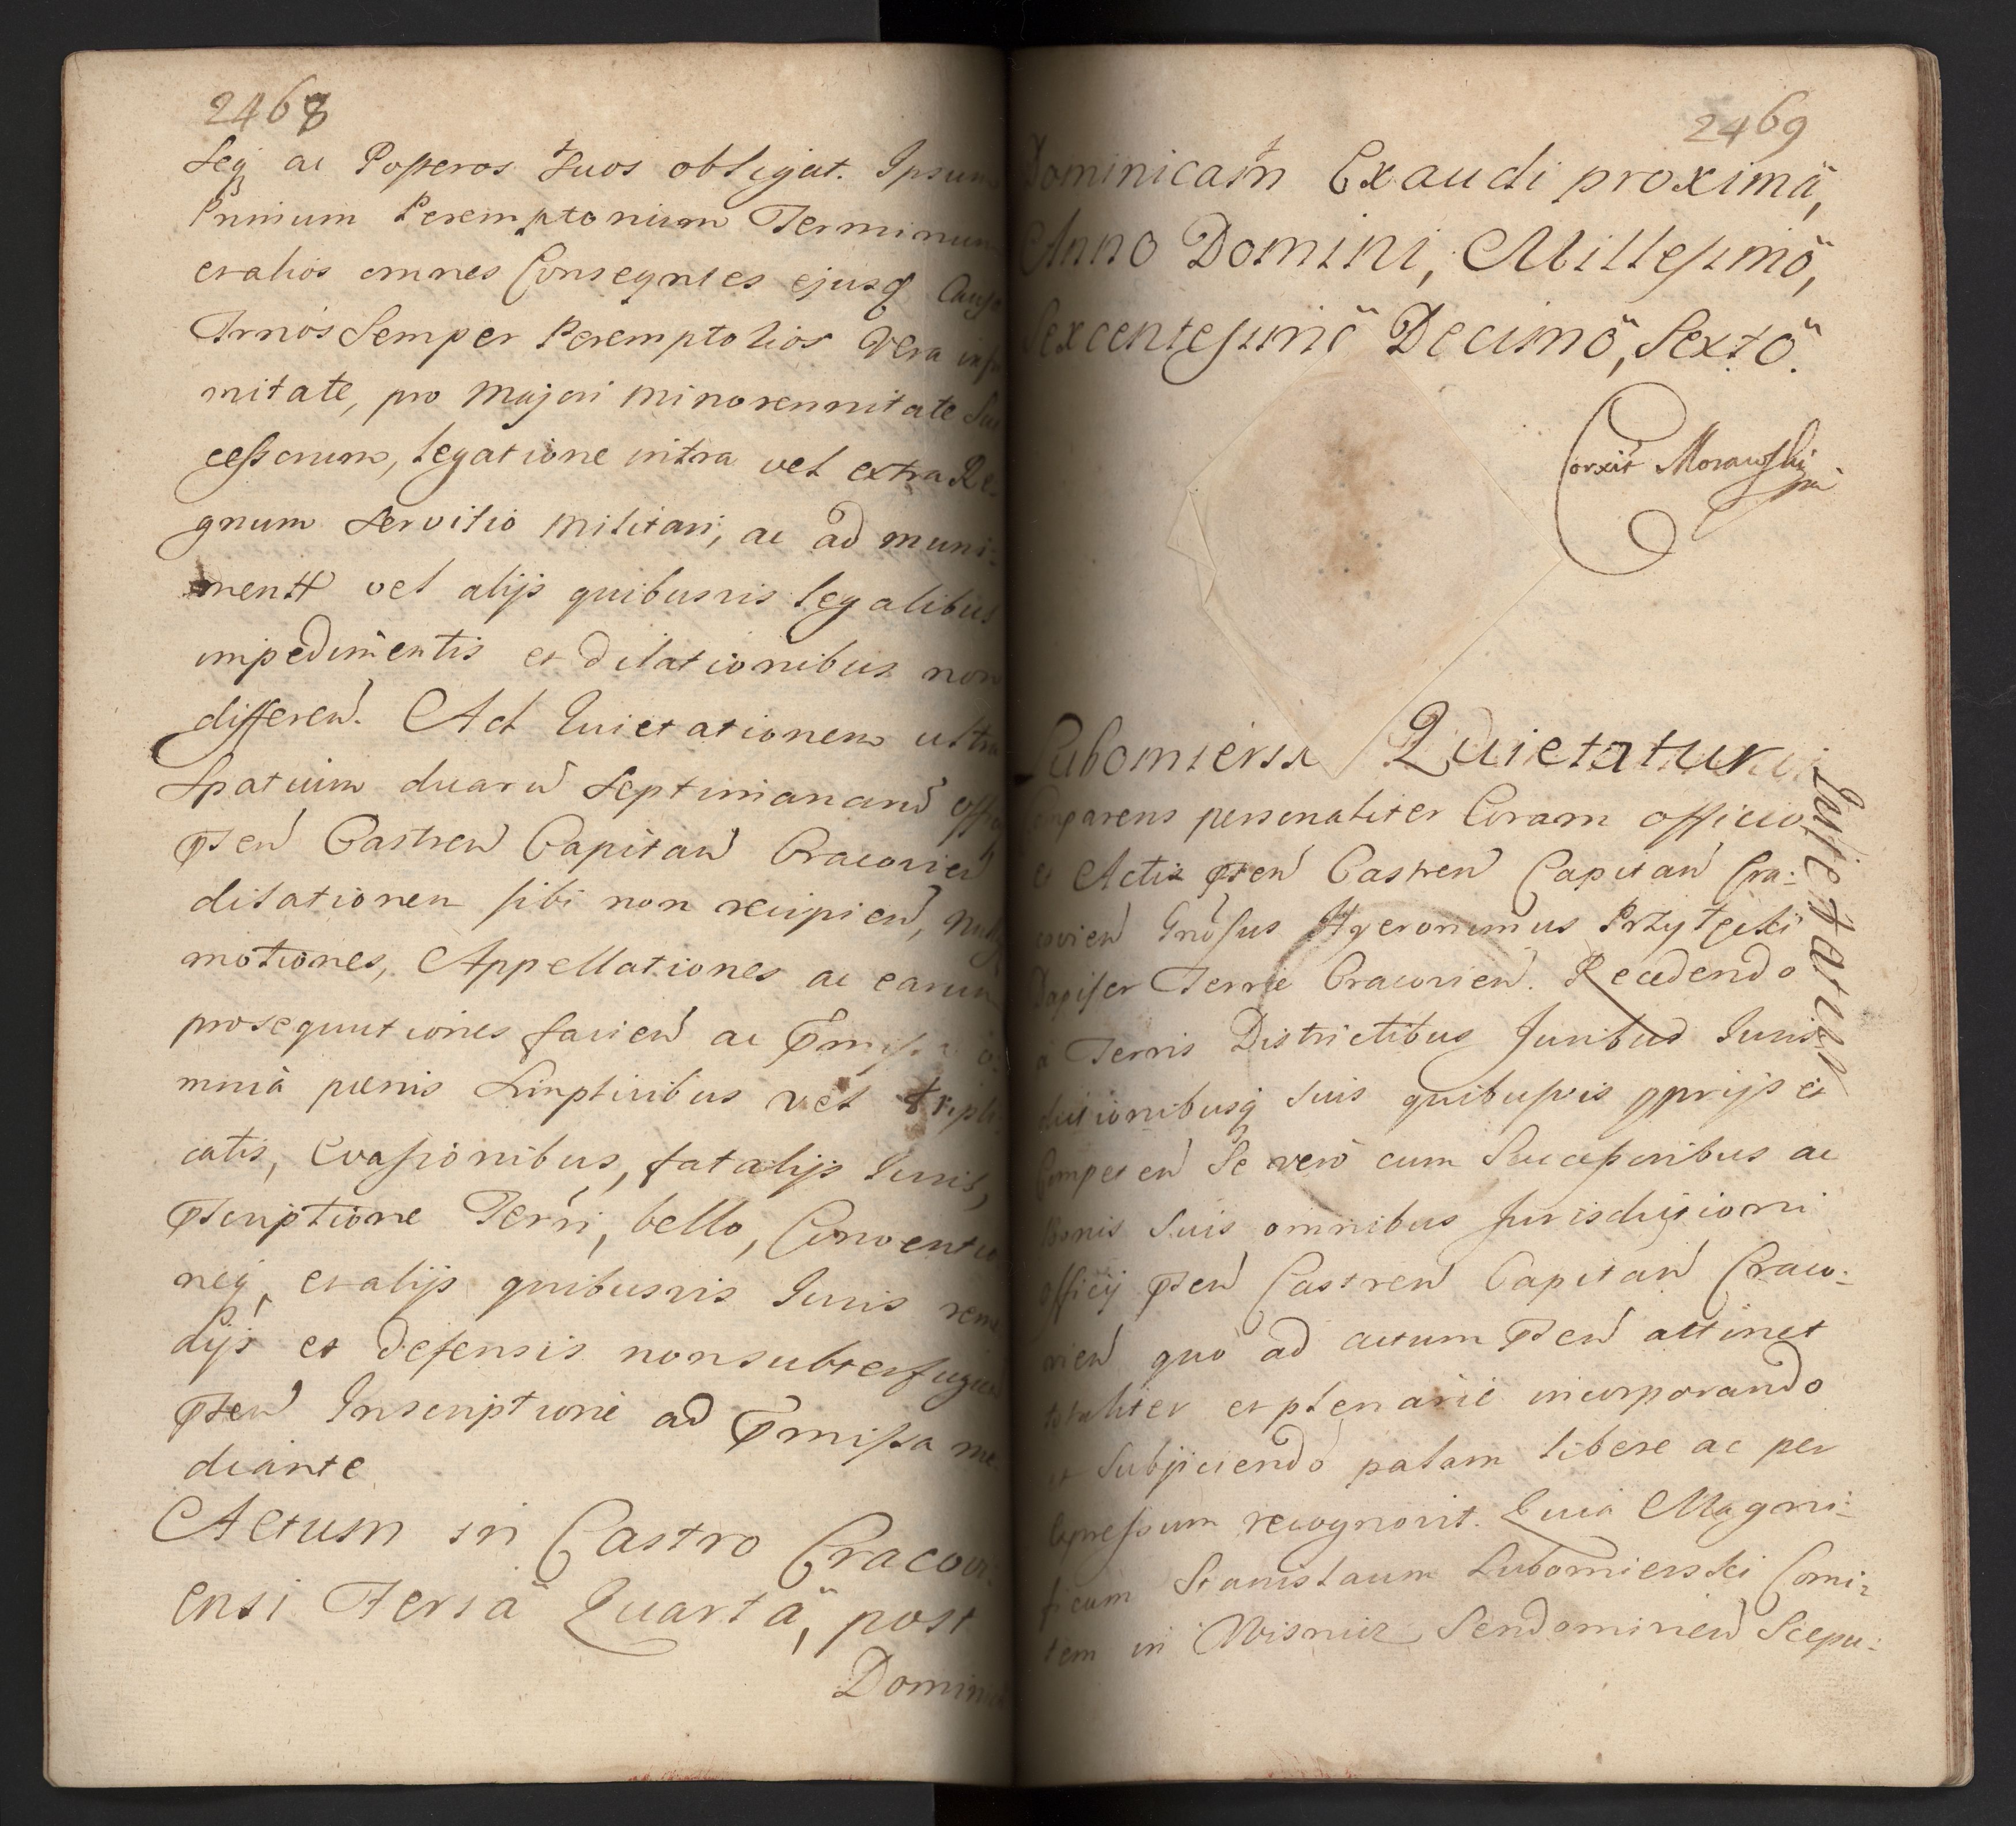 2468
Seq ac Posteros Suos obligat. Ipsum
Primum Peremptorium Terminum
et alios omnes Conseqntes ejusq
Trnos Semper Peremptorios Vera
mitate, pro Majori minorennitate Suc
cessorum, legatione intra vel extra Re-
gnum Servitio Militari, ac ad muni:
mentt vel alijs quibusvis legalibus
impedimentis et dilationibus non
differen. Ad Quietationem ultra
Spatium duaru Septimanaru
pten Castren Capitan Cracovien
dilationem sibi non recipien,
motiones, Appellationes ac earum
prosequutiones facien ac pmissa o:
mnia pœnis Simplicibus vel tripli
catis, Evasionibus, fatalijs Juris,
pscriptione Terri, bello, Conventio
neq, et alijs quibusvis Juris reme
dijs et defensis non subterfugien
pten Inscriptione ad pmissa me
diante
Actum in Castro Cracovi:
ensi Feria Quarta, post
Domini
2469
Dominicam Exaudi proxima,
Anno Domini, Millesimo,
Sexcentesimo Decimo, Sexto.
Corxit Morawski mp
Lubomierski Quietatur
Quietatur
Comparens personaliter Coram officio
et Actis pten Castren Capitan Cra:
covien Grosus Hyeronimus Przyłęcki
Dapifer Terræ Cracovien. Recedendo
a Terris Districtibus Juribus Juris
dictionibusq suis quibusvis pprijs et
Competen Se vero cum Successoribus ac
Bonis Suis omnibus Jurisdictioni
officij pten Castren Capitan Craco:
vien quo ad actum pten attinet
totaliter et plenarie incorporando
et Subjiciendo palam libere ac per
Expressum recognovit. Quia Magni:
ficum Stanislaum Lubomierski Comi:
tem in Wisnicz Sendomirien Scepu: